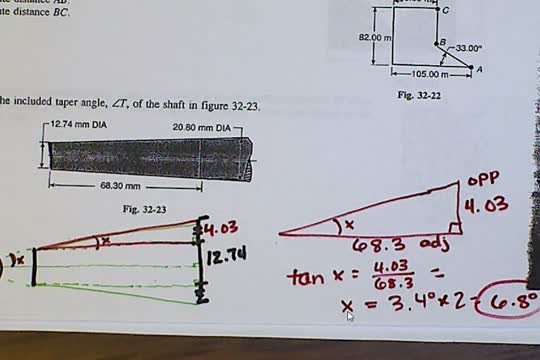 ute distance BC.
C
82.00 m
B
33.00°
A
105.00 m
Fig. 32-22
he included taper angle, ∠T, of the shaft in figure 32-23.
12.74 mm DIA
20.80 mm DIA
68.30 mm
Fig. 32-23
opp
4.03
x
68.3 adj
4.03
x
12.74
x
tan x = 4.03 =
68.3
x = 3.4° x 2 = 6.8°